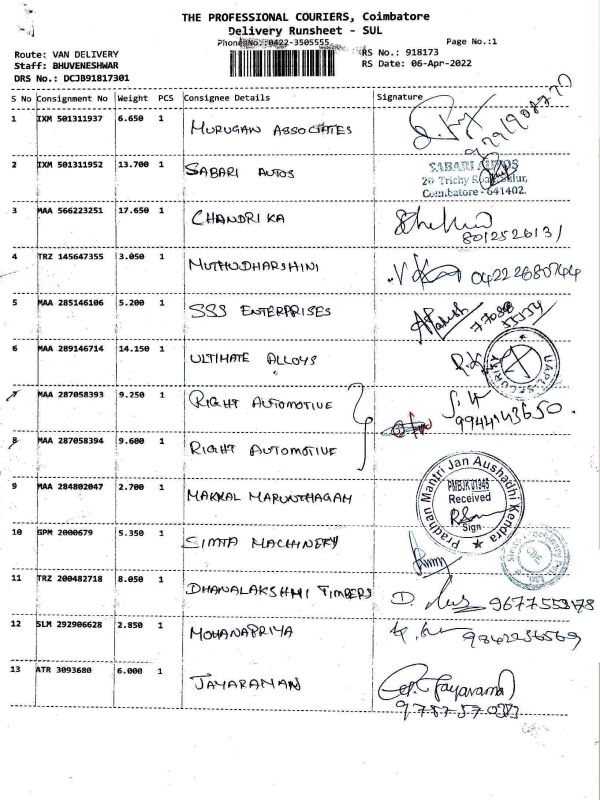 THE PROFESSIONAL COURIERS, Coimbatore
Delivery Runsheet - SUL
Phone No.:0422-3505555 Page No.:1
Route: VAN DELIVERY RS No.: 918173
Staff: BHUVENESHWAR RS Date: 06-Apr-2022
DRS No.: DCJB91817301
S No Consignment No Weight PCS Consignee Details Signature
1 IXM 501311937 6.650 1 MURUGAN ASSOCIATES
2 IXM 501311952 13.700 1 SABARI AUTOS SABARI AUTOS
20 Trichy Road, Sulur,
Coimbatore - 641402
3 MAA 566223251 17.650 1 CHANDRIKA
4 TRZ 145647355 3.050 1 MUTHUDHARSHINI
5 MAA 285146106 5.200 1 SSS ENTERPRISES
6 MAA 289146714 14.150 1 ULTIMATE ALLOYS
UAPL SECURITY
7 MAA 287058393 9.250 1 RIGHT AUTOMOTIVE
8 MAA 287058394 9.600 1 RIGHT AUTOMOTIVE
9 MAA 284802047 2.700 1 MAKKAL MARUNTHAGAM
Pradhan Mantri Jan Aushadhi Kendra
PMBJK 01345
Received
Sign
10 GPM 2000679 5.350 1 SIMTA MACHINERY
11 TRZ 200482718 8.050 1 DHANALAKSHMI TIMBERS
12 SLM 292906628 2.850 1 MOHANAPRIYA
13 ATR 3093680 6.000 1 JAYARAMAN